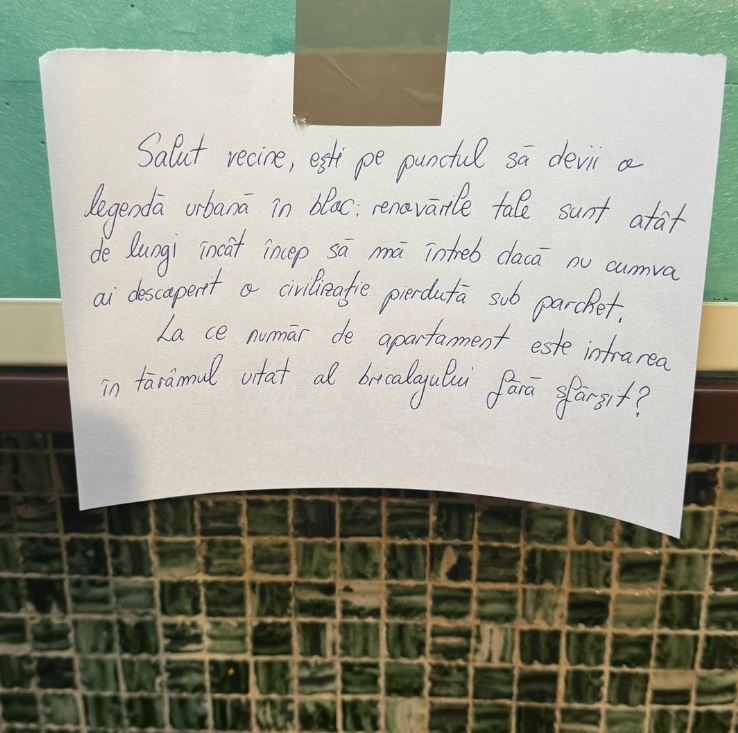 Salut vecine, ești pe punctul să devii o
legendă urbană în bloc; renovările tale sunt atât
de lungi încât încep să mă întreb dacă nu cumva
ai descoperit o civilizație pierdută sub parchet.
La ce număr de apartament este intrarea
în tărâmul uitat al bricolajului fără sfârșit?